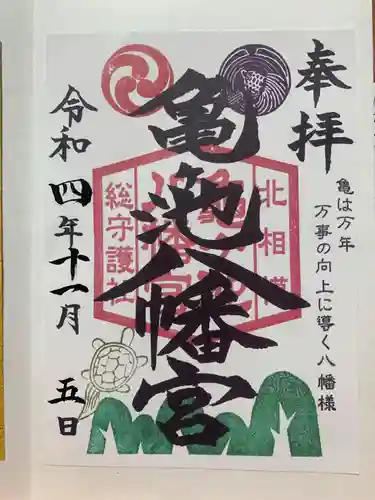 奉拝
亀は万年
万事の向上に導く八幡様
亀ヶ池八幡宮
北相模
総守護社
令和四年十一月五日